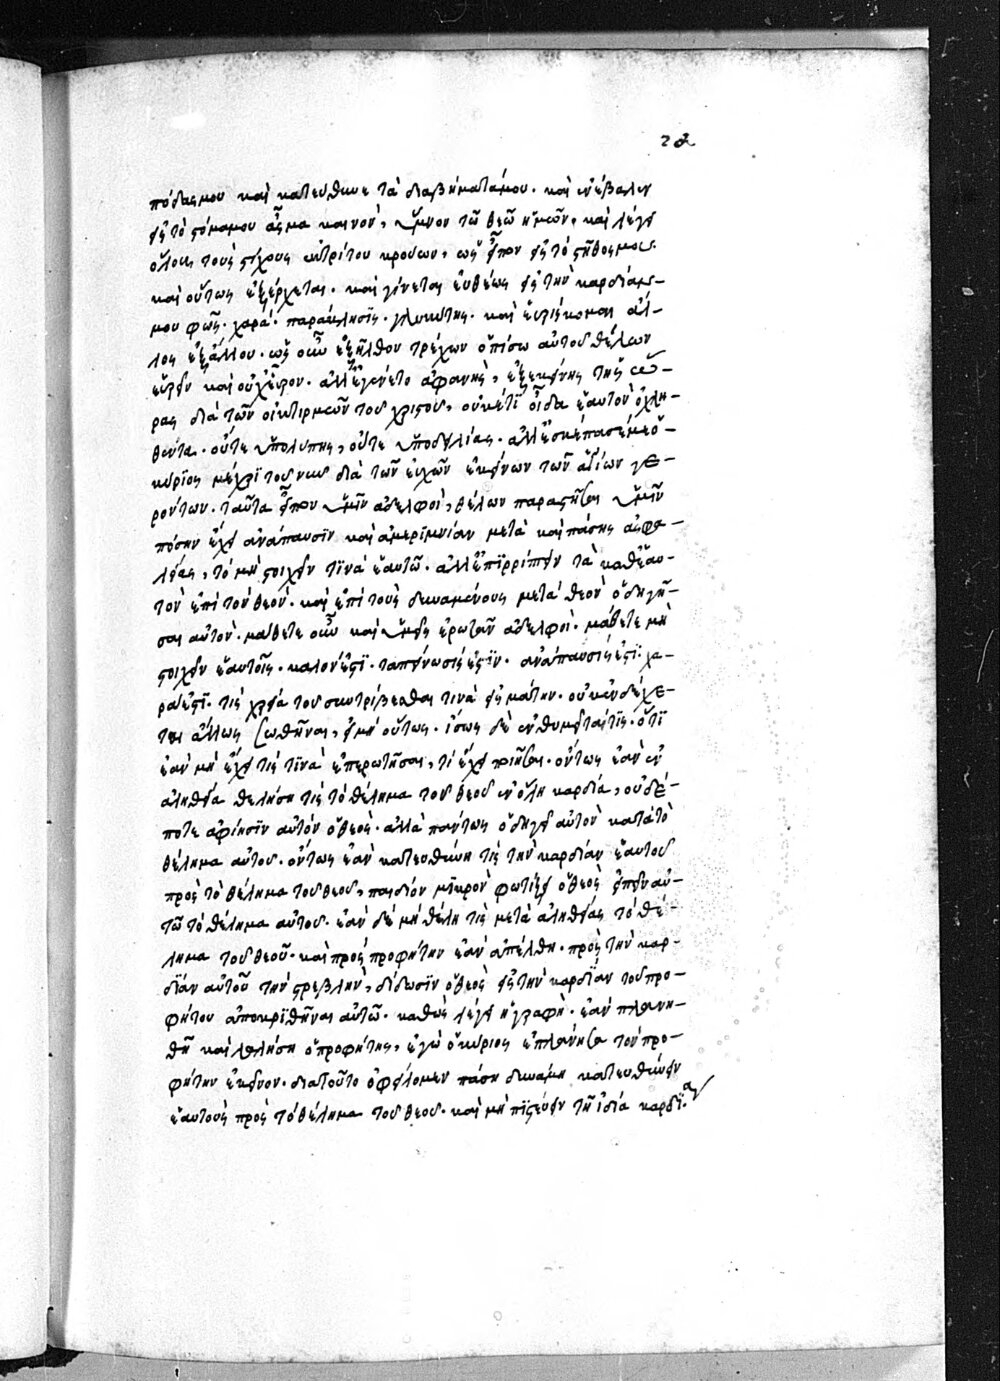 πόδας μου καὶ κατεύθυνε τὰ διαβήματά μου. καὶ ἐνέβαλεν
εἰς τὸ στόμα μου ἆσμα καινὸν, ὕμνον τῶ θεῶ ἡμῶν. καὶ λέγει
ὅλους τοὺς στίχους ἐκτρίτου κρούων, ὡς εἶπον εἰς τὸ στῆθος μου
καὶ οὕτως ἐξέρχεται. καὶ γίνεται εὐθέως εἰς τὴν καρδίαν
μου φῶς. χαρά. παράκλησις. γλυκύτης. καὶ εὑρίσκομαι ἄλ-
λος ἐξ ἄλλου. ὡς οὖν ἐξῆλθον τρέχων ὀπίσω αὐτοῦ θέλων
εὑρεῖν καὶ οὐχ εὗρον. ἀλλ' ἐγένετο ἀφανὴς, ἐξ ἐκείνης τῆς ὥ-
ρας διὰ τῶν οἰκτιρμῶν τοῦ χριστοῦ, οὐκέτι οἶδα ἑαυτὸν ὀχλη-
θέντα. οὔτε ὑπὸ λύπης, οὔτε ὑπὸ δειλίας. ἀλλ' ἐσκέπασέ με ὁ
κύριος μέχρι τοῦ νῦν διὰ τῶν εὐχῶν ἐκείνων τῶν ἁγίων γε-
ρόντων. ταῦτα εἶπον ὑμῖν ἀδελφοὶ, θέλων παραστῆσαι ὑμῖν
πόσην ἔχει ἀνάπαυσιν καὶ ἀμεριμνίαν μετὰ καὶ πάσης ἀσφα-
λείας, τὸ μὴ στοιχεῖν τινὰ ἑαυτῶ. ἀλλ' ἐπιρρίπτειν τὰ καθ' ἑαυ-
τὸν ἐπὶ τὸν θεὸν. καὶ ἐπὶ τοὺς δυναμένους μετὰ θεὸν ὁδηγῆ-
σαι αὐτὸν. μάθετε οὖν καὶ ὑμεῖς ἐρωτᾶν ἀδελφοὶ. μάθετε μὴ
στοιχεῖν ἑαυτοῖς. καλόν ἐστι. ταπείνωσίς ἐστιν. ἀνάπαυσίς ἐστι. χα-
ρά ἐστι. τίς χρεία τοῦ συντρίβεσθαι τινὰ εἰς μάτην. οὐκ ἐνδέχε-
ται ἄλλως σωθῆναι, εἰ μὴ οὕτως. ἴσως δὲ ἐνθυμεῖταί τις. ὅτι
ἐὰν μὴ ἔχει τίς τινὰ ἐπερωτῆσαι, τί ἔχει ποιῆσαι. ὄντως ἐὰν ἐν
ἀληθεία θελήση τίς τὸ θέλημα τοῦ θεοῦ ἐν ὅλη καρδία, οὐδέ-
ποτε ἀφίησιν αὐτὸν ὁ θεὸς. ἀλλὰ πάντως ὁδηγεῖ αὐτὸν κατὰ τὸ
θέλημα αὐτοῦ. ὄντως ἐὰν κατευθύνη τίς τὴν καρδίαν ἑαυτοῦ
πρὸς τὸ θέλημα τοῦ θεοῦ, παιδίον μικρὸν φωτίζει ὁ θεὸς εἰπεῖν αὐ-
τῶ τὸ θέλημα αὐτοῦ. ἐὰν δὲ μὴ θέλη τὶς μετὰ ἀληθείας τὸ θέ-
λημα τοῦ θεοῦ. καὶ πρὸς προφήτην ἐὰν ἀπέλθη. πρὸς τὴν καρ-
δίαν αὐτοῦ τὴν στρεβλὴν, δίδωσιν ὁ θεὸς εἰς τὴν καρδίαν τοῦ προ-
φήτου ἀποκριθῆναι αὐτῶ. καθὼς λέγει ἡ γραφὴ. ἐὰν πλανη-
θῆ καὶ λαλήση ὁ προφήτης, ἐγὼ ὁ κύριος ἐπλάνησα τὸν προ-
φήτην ἐκεῖνον. διατοῦτο ὀφείλομεν πάση δυνάμη κατευθύνειν
ἑαυτοὺς πρὸς τὸ θέλημα τοῦ θεοῦ. καὶ μὴ πιστεύειν τῆ ἰδία καρδία.